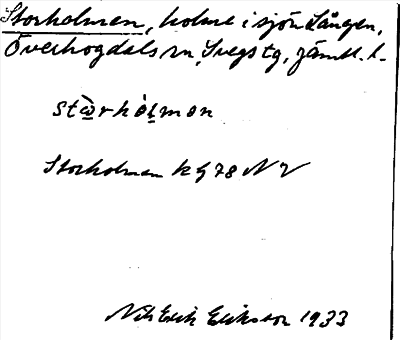 Storholmen, holme i sjön Lången,
Överhogdals sn, Svegs tg, Jämtl. l.
stὼrhόlmən
Storholmen k G 78 N V
Nils Erik Eriksson 1933